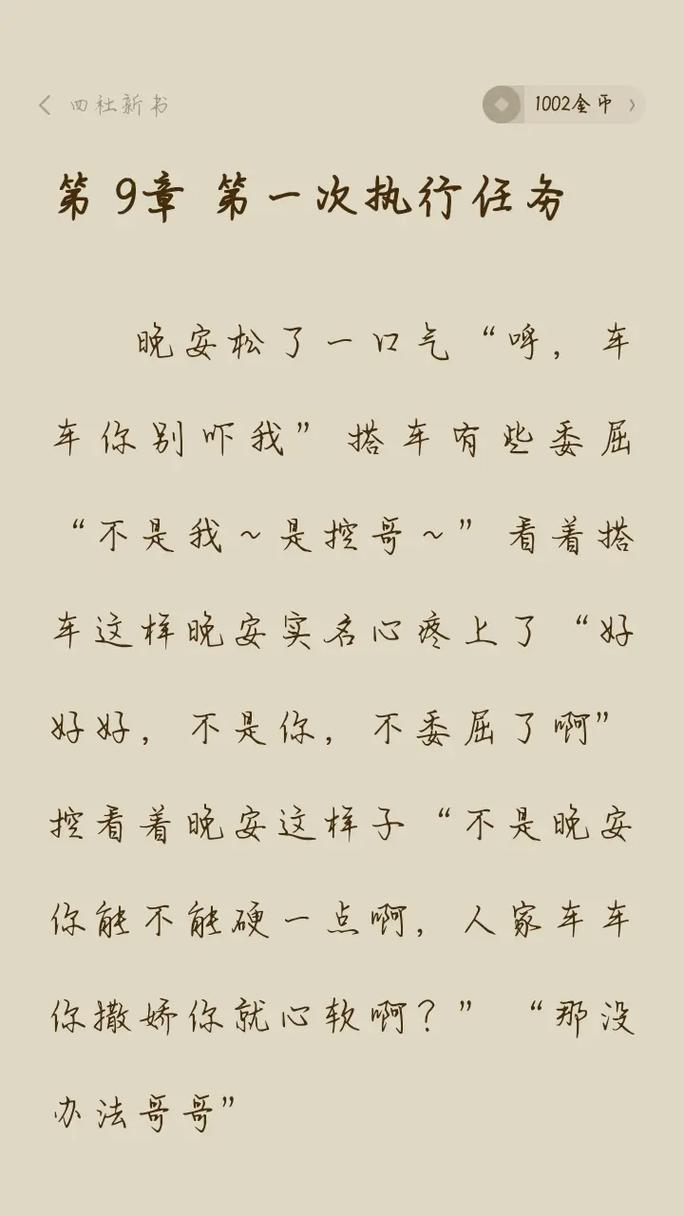 四社新书
1002金币
第 9章 第一次执行任务
晚安松了一口气“呼，车
车你别吓我”搭车有些委屈
“不是我～是挖哥～”看着搭
车这样晚安实名心疼上了“好
好好，不是你，不委屈了啊”
挖看着晚安这样子“不是晚安
你能不能硬一点啊，人家车车
你撒娇你就心软啊？”“那没
办法哥哥”